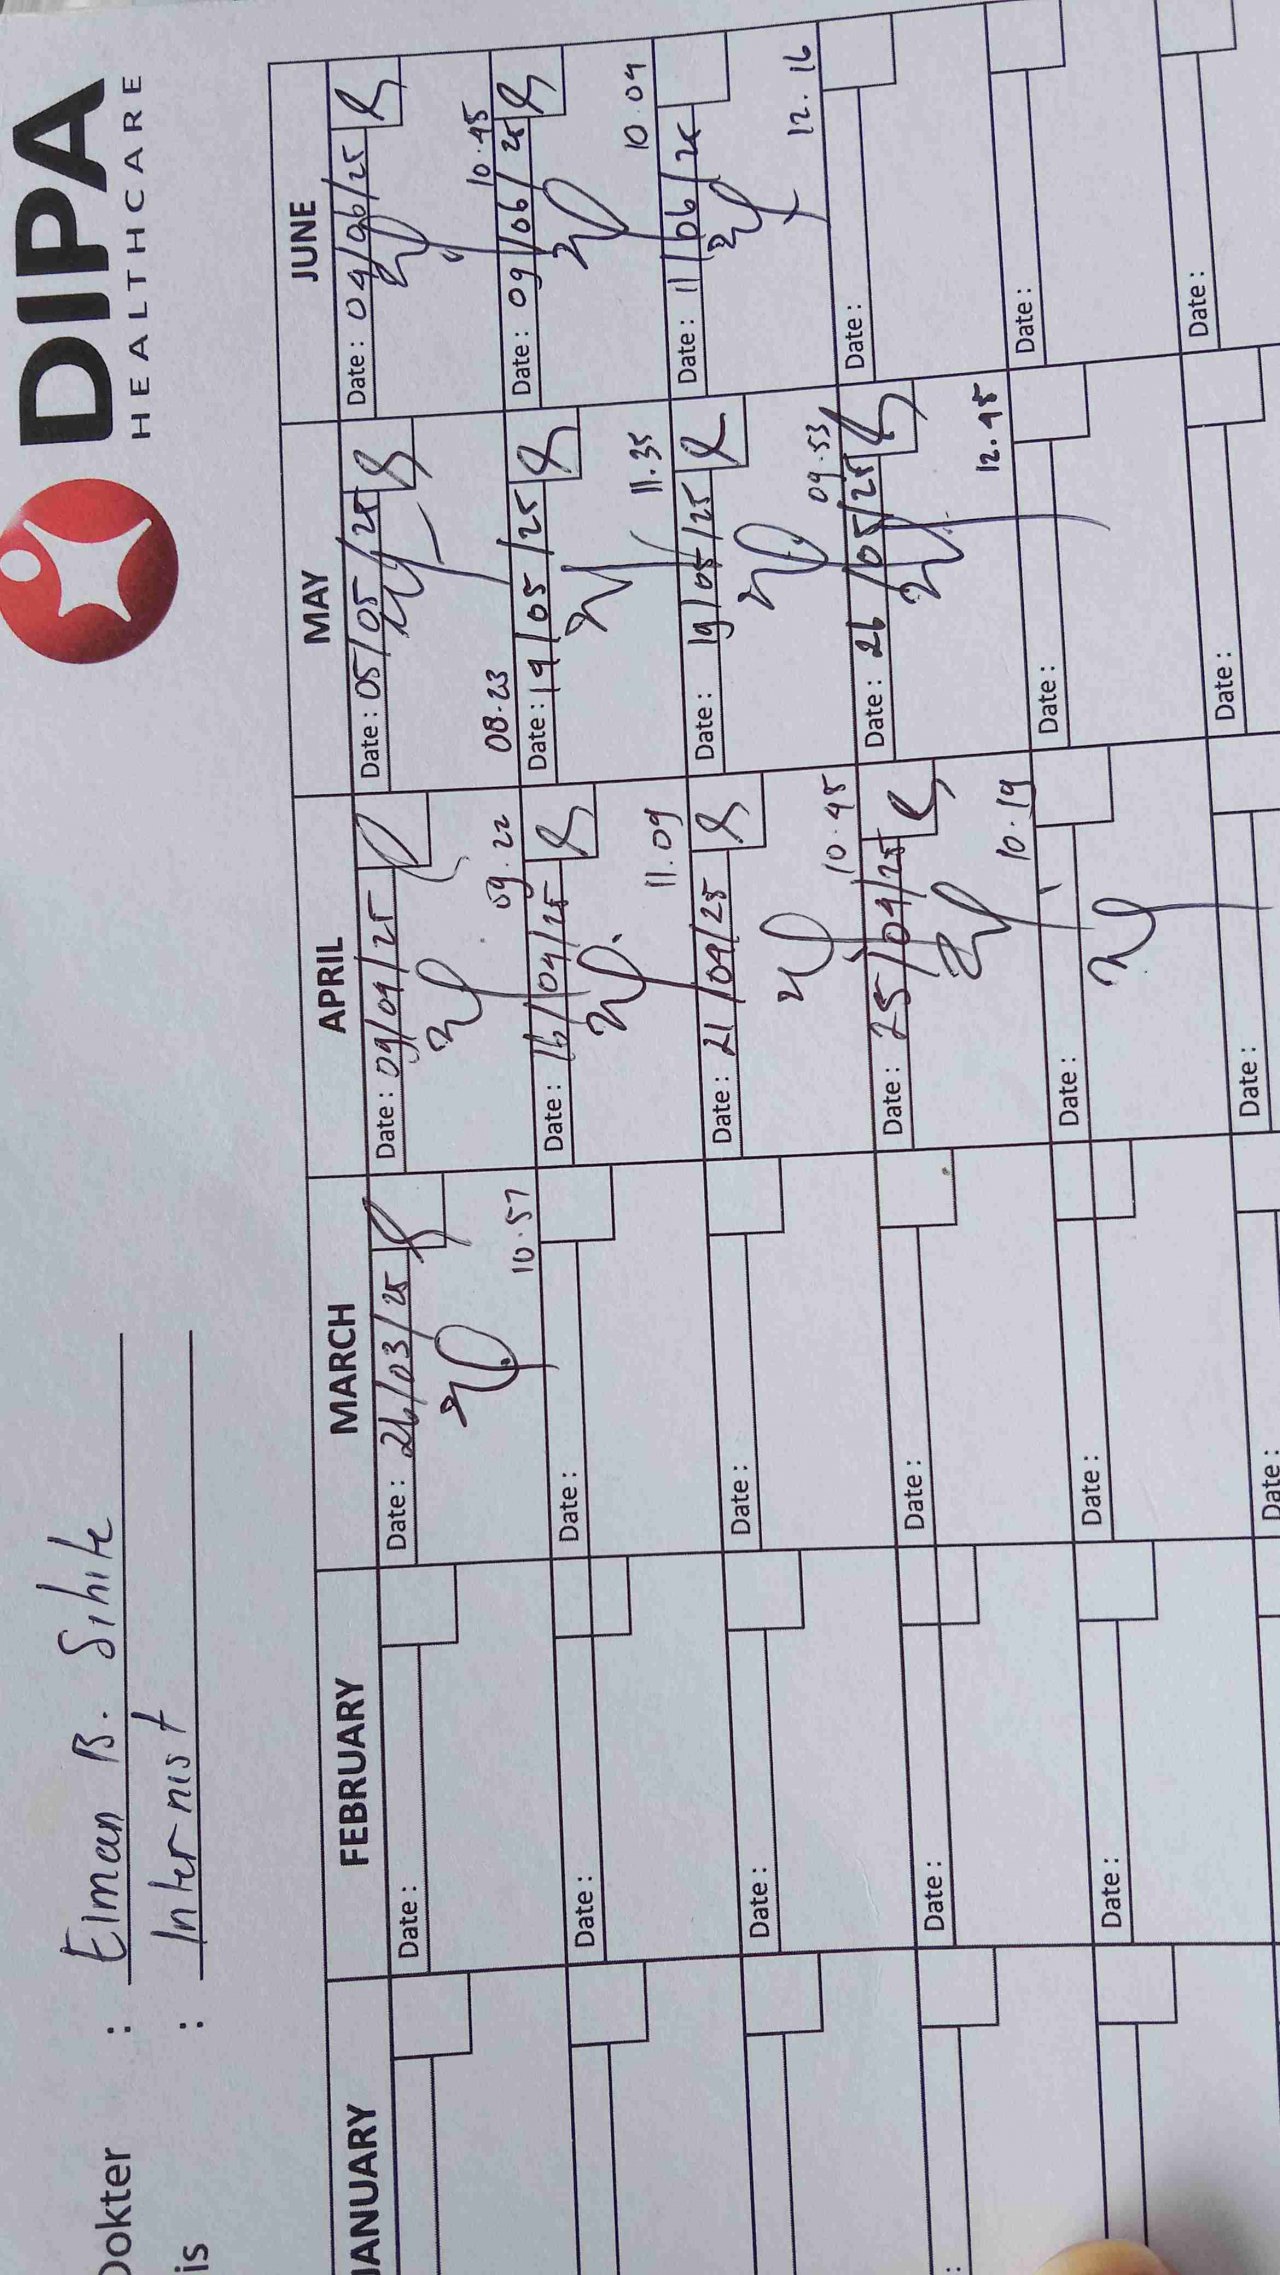 DIPA
HEALTHCARE
Dokter : Elman B. Sihite
is : Internist
JANUARY FEBRUARY MARCH APRIL MAY JUNE
Date : Date : 26/03/25 Date : 09/04/25 Date : 05/05/25 Date : 04/06/25
10.57 09.22 08.23 10.45
Date : Date : Date : 16/04/25 Date : 14/05/25 Date : 09/06/25
11.09 11.35 10.04
Date : Date : Date : 21/04/25 Date : 19/05/25 Date : 11/06/25
10.45 09.53 12.16
: Date : Date : Date : 25/04/25 Date : 26/05/25 Date :
10.19 12.45
Date : Date : Date : Date : Date :
Date : Date : Date : Date :